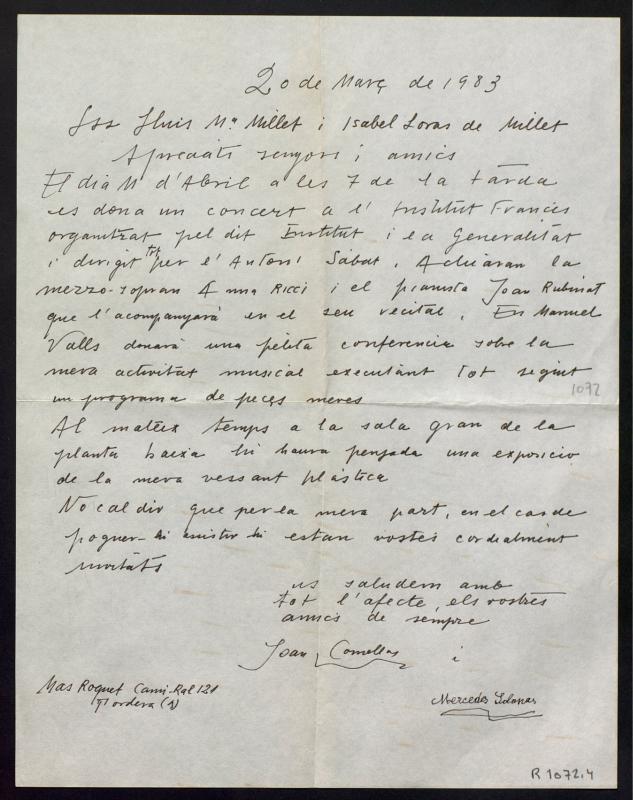 20 de Març de 1983
Srs Lluis Mª Millet i Isabel Loras de Millet
Apreciats senyors i amics
El dia 11 d'Abril a les 7 de la tarda
es dona un concert a l'Institut Francès
organitzat pel dit Institut i la Generalitat
i dirigit per l'Antoni Sàbat. Actuaran la
mezzo-sopran Anna Ricci i el pianista Joan Rubinat
que l'acompanyarà en el seu recital. En Manuel
Valls donarà una petita conferencia sobre la
meva activitat musical executant tot seguit
un programa de peçes meves
1072
Al mateix temps a la sala gran de la
planta baixa hi haura penjada una exposició
de la meva vessant plàstica
No cal dir que per la meva part, en el cas de
poguer-hi assistir hi estan vostès cordialment
invitats
us saludem amb
tot l'afecte, els vostres
amics de sempre
Joan Comellas i
Mas Roquet Cami-Ral 121
Tordera
Mercedes
R 1072.4